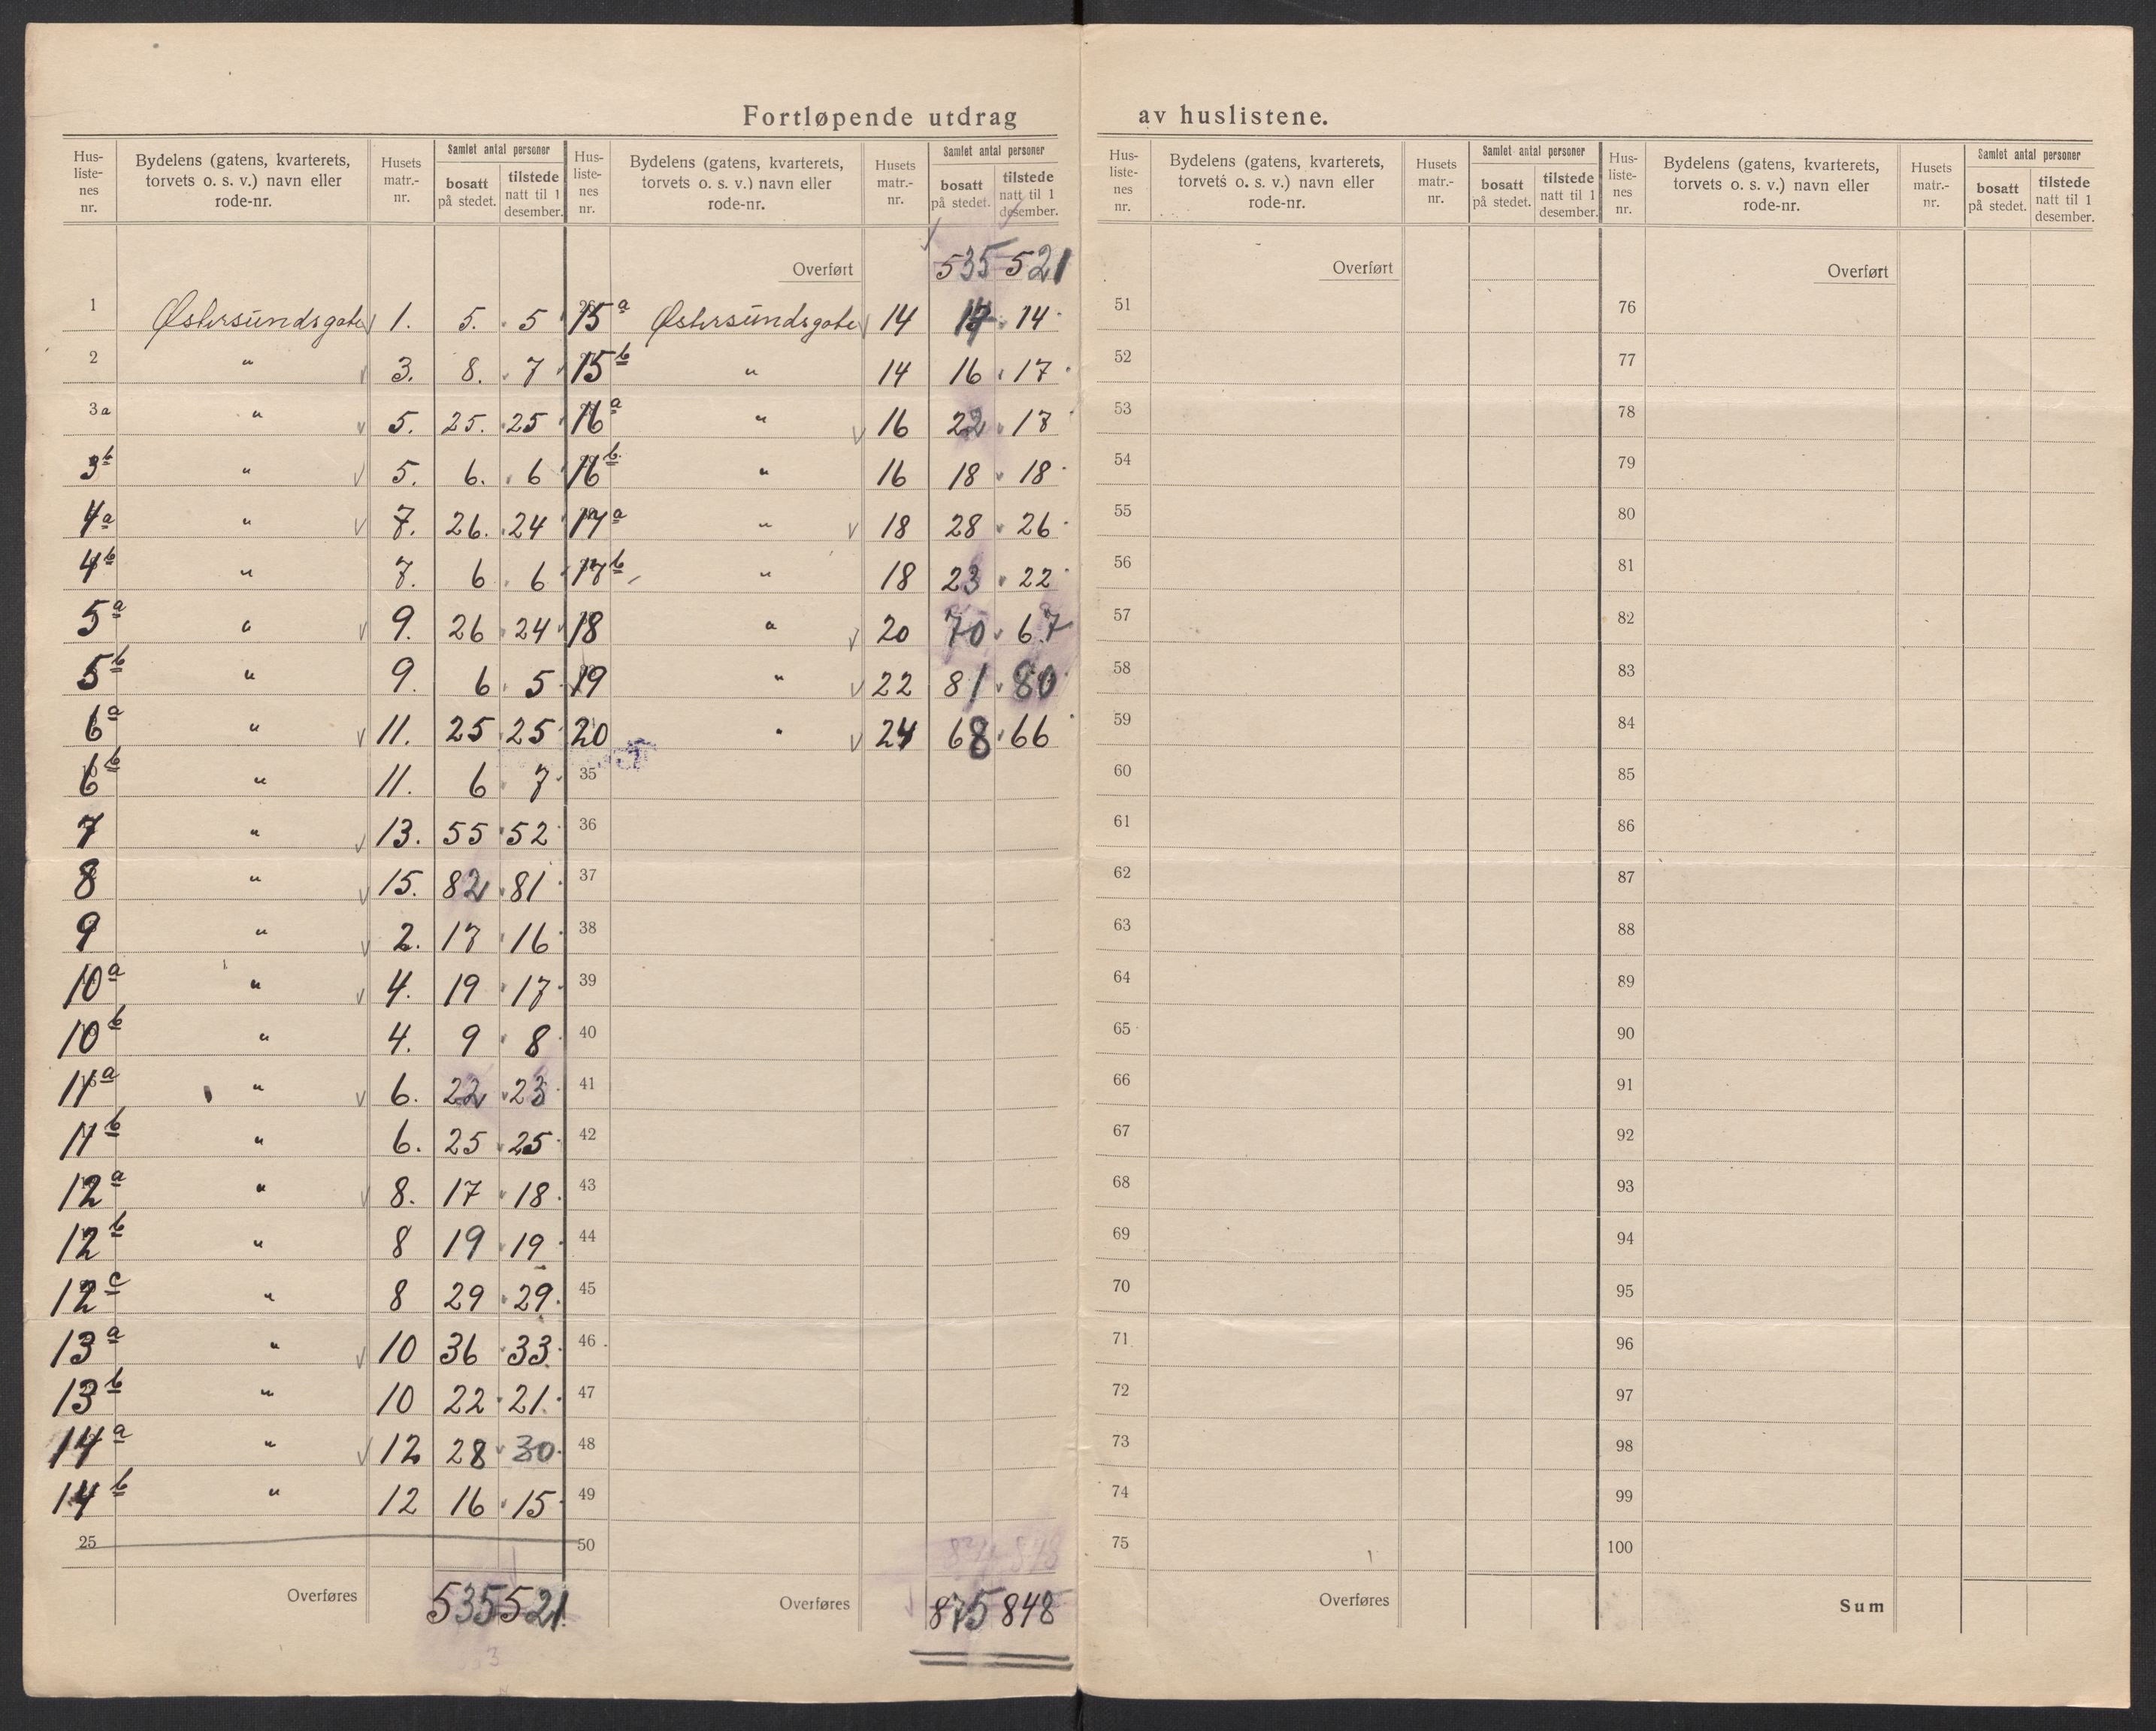 Fortløpende utdrag av huslistene.
Hus-listenes nr. | Bydelens (gatens, kvarterets, torvets o. s. v.) navn eller rode-nr. | Husets matr.-nr. | Samlet antal personer bosatt på stedet. | tilstede natt til 1 desember.
1 Østersundsgate 1. 5. 5
2 " 3. 8. 7
3a " 5. 25. 25
3b " 5. 6. 6
4a " 7. 26. 24
4b " 7. 6 6
5a " 9. 26 24
5b " 9. 6 5
6a " 11. 25 25
6b " 11. 6 7
7 " 13. 55 52
8 " 15. 82 81
9 " 2. 17 16
10a " 4. 19 17
10b " 4. 9 8
11a " 6. 22 23
11b " 6. 25 25
12a " 8. 17 18
12b " 8 19 19
12c " 8 29 29
13a " 10 36 33
13b " 10 22 21
14a " 12 28 30
14b " 12 16 15
25
Overføres 535 521
Hus-listenes nr. | Bydelens (gatens, kvarterets, torvets o. s. v.) navn eller rode-nr. | Husets matr.-nr. | Samlet antal personer bosatt på stedet. | tilstede natt til 1 desember.
Overført 535 521
15a Østersundsgate 14 14 14
15b " 14 16 17
16a " 16 22 17
16b " 16 18 18
17a " 18 28 26
17b " 18 23 22
18 " 20 70 67
19 " 22 81 80
20 " 24 68 66
35
36
37
38
39
40
41
42
43
44
45
46
47
48
49
50
Overføres 875 848
Hus-listenes nr. | Bydelens (gatens, kvarterets, torvets o. s. v.) navn eller rode-nr. | Husets matr.-nr. | Samlet antal personer bosatt på stedet. | tilstede natt til 1 desember.
Overført
51
52
53
54
55
56
57
58
59
60
61
62
63
64
65
66
67
68
69
70
71
72
73
74
75
Overføres
Hus-listenes nr. | Bydelens (gatens, kvarterets, torvets o. s. v.) navn eller rode-nr. | Husets matr.-nr. | Samlet antal personer bosatt på stedet. | tilstede natt til 1 desember.
Overført
76
77
78
79
80
81
82
83
84
85
86
87
88
89
90
91
92
93
94
95
96
97
98
99
100
Sum